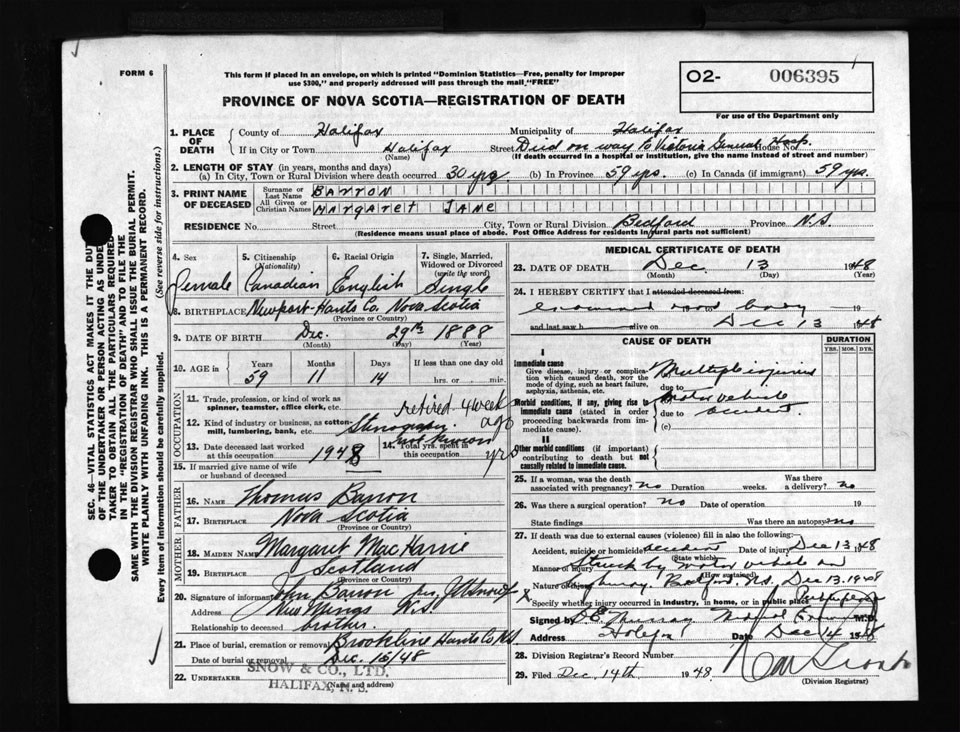 FORM 6
This form if placed in an envelope, on which is printed "Dominion Statistics—Free, penalty for improper
use $300," and properly addressed will pass through the mail "FREE"
PROVINCE OF NOVA SCOTIA—REGISTRATION OF DEATH
O2- 006395
For use of the Department only
1. PLACE OF DEATH
County of Halifax Municipality of Halifax
If in City or Town Halifax Street Died on way to Victoria General Hosp. House No.
(Name) (If death occurred in a hospital or institution, give the name instead of street and number)
2. LENGTH OF STAY (in years, months and days)
(a) In City, Town or Rural Division where death occurred 30 yrs. (b) In Province 59 yrs. (c) In Canada (if immigrant) 59 yrs.
3. PRINT NAME OF DECEASED
Surname or Last Name BARRON
All Given or Christian Names MARGARET JANE
RESIDENCE No. Street City, Town or Rural Division Bedford Province N.S.
(Residence means usual place of abode. Post Office Address for residents in rural parts not sufficient)
4. Sex 5. Citizenship (Nationality) 6. Racial Origin 7. Single, Married, Widowed or Divorced (write the word)
Female Canadian English Single
8. BIRTHPLACE Newport Hants Co. Nova Scotia
(Province or Country)
9. DATE OF BIRTH Dec. 29th 1888
(Month) (Day) (Year)
10. AGE in Years Months Days If less than one day old
59 11 14 hrs. or min.
OCCUPATION
11. Trade, profession, or kind of work as
spinner, teamster, office clerk, etc. retired 4 weeks ago
12. Kind of industry or business, as cotton-
mill, lumbering, bank, etc. Stenographer
13. Date deceased last worked at this occupation 1948
14. Total yrs. spent in this occupation not known yrs
15. If married give name of wife
or husband of deceased
FATHER
16. NAME Thomas Barron
17. BIRTHPLACE Nova Scotia
(Province or Country)
MOTHER
18. MAIDEN NAME Margaret
19. BIRTHPLACE Scotland
(Province or Country)
20. Signature of informant John Barron per
Address N.S.
Relationship to deceased brother.
21. Place of burial, cremation or removal Brookline Hants Co. N.S.
Date of burial or removal Dec. 15/48
22. UNDERTAKER SNOW & CO., LTD.
HALIFAX, N. S.
(Name and address)
MEDICAL CERTIFICATE OF DEATH
23. DATE OF DEATH Dec. 13 1948
(Month) (Day) (Year)
24. I HEREBY CERTIFY that I attended deceased from:
examined body 19
and last saw h alive on Dec 13 1948
CAUSE OF DEATH DURATION
YRS. MOS. DYS.
I
Immediate cause
Give disease, injury or complication which caused death, not the mode of dying, such as heart failure, asphyxia, asthenia, etc.
Multiple injuries
due to
Morbid conditions, if any, giving rise to immediate cause (stated in order proceeding backwards from immediate cause).
motor vehicle
due to accident
(c)
II
Other morbid conditions (if important) contributing to death but not causally related to immediate cause.
25. If a woman, was the death
associated with pregnancy? no Duration weeks. Was there a delivery? no
26. Was there a surgical operation? no Date of operation 19
State findings Was there an autopsy no
27. If death was due to external causes (violence) fill in also the following:
Accident, suicide or homicide accident Date of injury Dec 13, 1948
(State which)
Manner of injury Struck by motor vehicle on
(How sustained)
Nature of injury highway, Bedford, N.S. Dec 13. 1948
Specify whether injury occurred in industry, in home, or in public place
Signed by Murray M.D.
Address Halifax Date Dec 14 1948
28. Division Registrar's Record Number
29. Filed Dec. 14th 1948
(Division Registrar)
SEC. 46—VITAL STATISTICS ACT MAKES IT THE DUTY
OF THE UNDERTAKER OR PERSON ACTING AS UNDER-
TAKER TO OBTAIN ALL THE PARTICULARS REQUIRED
IN THE "REGISTRATION OF DEATH" AND TO FILE THE
SAME WITH THE DIVISION REGISTRAR WHO SHALL ISSUE THE BURIAL PERMIT.
WRITE PLAINLY WITH UNFADING INK. THIS IS A PERMANENT RECORD.
Every item of information should be carefully supplied. (See reverse side for instructions.)